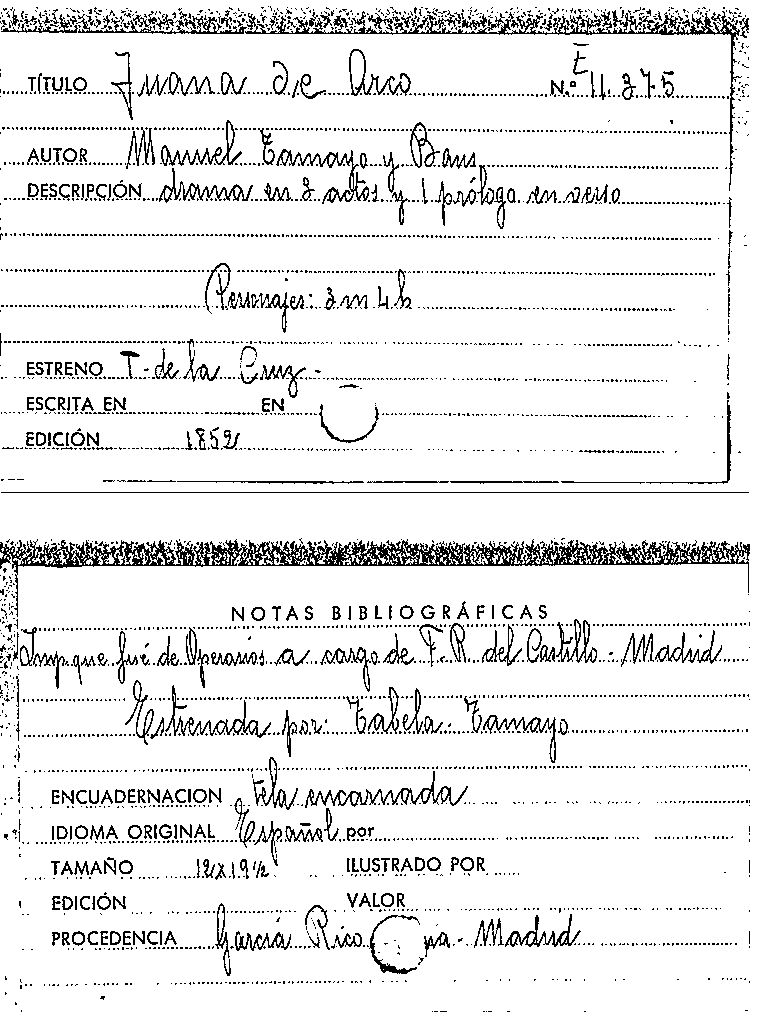 TÍTULO Juana de Arco N.º E 11.375
AUTOR Manuel Tamayo y Baus
DESCRIPCIÓN drama en 3 actos y 1 prólogo en verso
Personajes: 3 m 4 h
ESTRENO T. de la Cruz -
ESCRITA EN EN
EDICIÓN 1852
NOTAS BIBLIOGRÁFICAS
Imp. que fué de Operarios a cargo de F. R. del Castillo - Madrid
Estrenada por: Tabela - Tamayo
ENCUADERNACION tela encarnada
IDIOMA ORIGINAL Español por
TAMAÑO 12 x 19 ½ ILUSTRADO POR
EDICIÓN VALOR
PROCEDENCIA García Rico Madrid